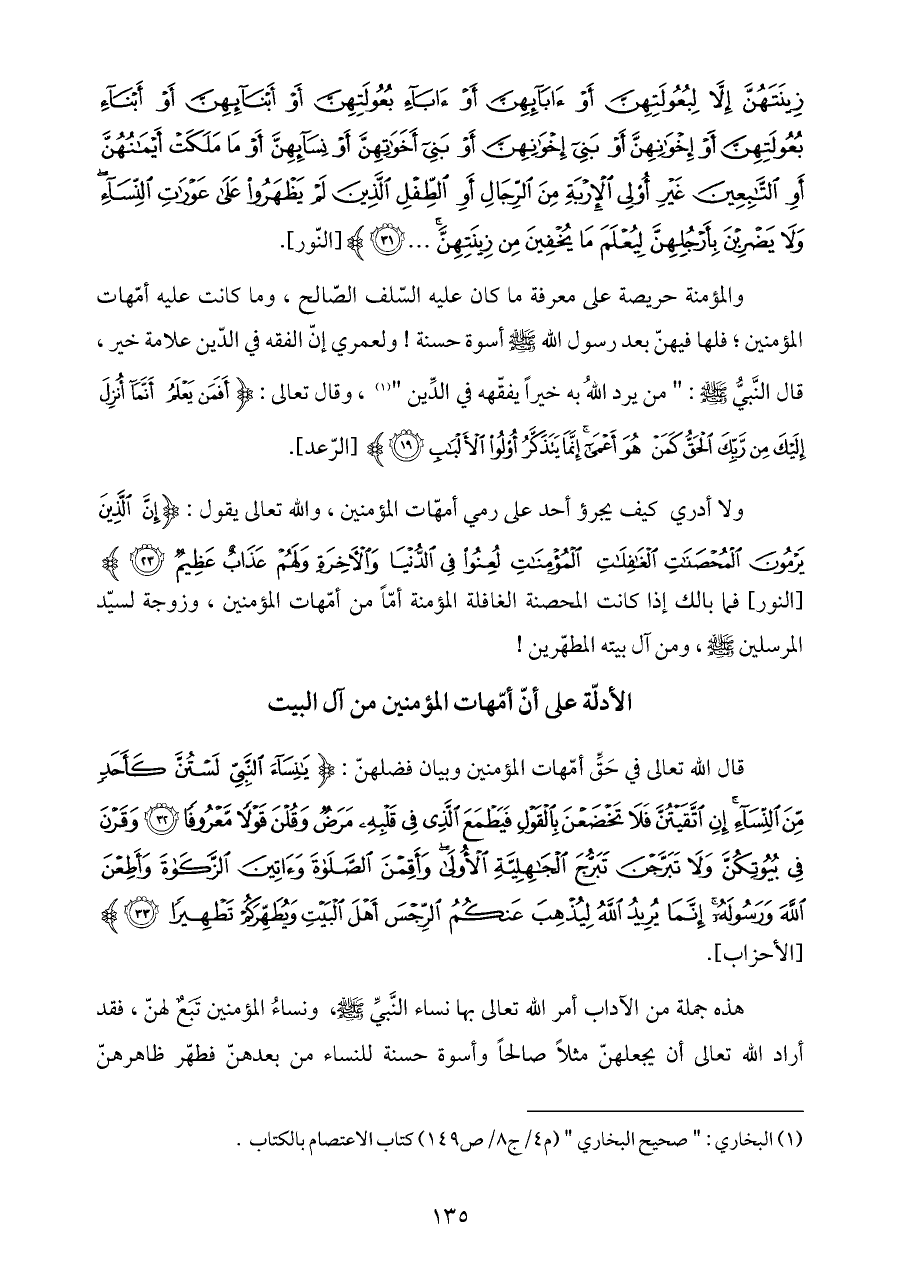 زِينَتَهُنَّ إِلَّا لِبُعُولَتِهِنَّ أَوْ ءَابَآئِهِنَّ أَوْ ءَابَآءِ بُعُولَتِهِنَّ أَوْ أَبْنَآئِهِنَّ أَوْ أَبْنَآءِ
بُعُولَتِهِنَّ أَوْ إِخْوَٰنِهِنَّ أَوْ بَنِىٓ إِخْوَٰنِهِنَّ أَوْ بَنِىٓ أَخَوَٰتِهِنَّ أَوْ نِسَآئِهِنَّ أَوْ مَا مَلَكَتْ أَيْمَٰنُهُنَّ
أَوِ ٱلتَّٰبِعِينَ غَيْرِ أُو۟لِى ٱلْإِرْبَةِ مِنَ ٱلرِّجَالِ أَوِ ٱلطِّفْلِ ٱلَّذِينَ لَمْ يَظْهَرُوا۟ عَلَىٰ عَوْرَٰتِ ٱلنِّسَآءِ ۖ
وَلَا يَضْرِبْنَ بِأَرْجُلِهِنَّ لِيُعْلَمَ مَا يُخْفِينَ مِن زِينَتِهِنَّ ۚ ... ٣١ ﴾ [النّور].
والمؤمنة حريصة على معرفة ما كان عليه السّلف الصّالح ، وما كانت عليه أمّهات
المؤمنين ؛ فلها فيهنّ بعد رسول الله ﷺ أسوة حسنة ! ولعمري إنّ الفقه في الدّين علامة خير ،
قال النَّبيُّ ﷺ : " من يرد اللهُ به خيراً يفقّهه في الدِّين "(١) ، وقال تعالى : ﴿ أَفَمَن يَعْلَمُ أَنَّمَآ أُنزِلَ
إِلَيْكَ مِن رَّبِّكَ ٱلْحَقُّ كَمَنْ هُوَ أَعْمَىٰٓ ۚ إِنَّمَا يَتَذَكَّرُ أُو۟لُوا۟ ٱلْأَلْبَٰبِ ١٩ ﴾ [الرّعد].
ولا أدري كيف يجرؤ أحد على رمي أمهّات المؤمنين ، والله تعالى يقول : ﴿ إِنَّ ٱلَّذِينَ
يَرْمُونَ ٱلْمُحْصَنَٰتِ ٱلْغَٰفِلَٰتِ ٱلْمُؤْمِنَٰتِ لُعِنُوا۟ فِى ٱلدُّنْيَا وَٱلْءَاخِرَةِ وَلَهُمْ عَذَابٌ عَظِيمٌ ٢٣ ﴾
[النور] فما بالك إذا كانت المحصنة الغافلة المؤمنة أمّاً من أمّهات المؤمنين ، وزوجة لسيّد
المرسلين ﷺ ، ومن آل بيته المطهّرين !
الأدلّة على أنّ أمّهات المؤمنين من آل البيت
قال الله تعالى في حَقِّ أمّهات المؤمنين وبيان فضلهنّ : ﴿ يَٰنِسَآءَ ٱلنَّبِىِّ لَسْتُنَّ كَأَحَدٍ
مِّنَ ٱلنِّسَآءِ ۚ إِنِ ٱتَّقَيْتُنَّ فَلَا تَخْضَعْنَ بِٱلْقَوْلِ فَيَطْمَعَ ٱلَّذِى فِى قَلْبِهِۦ مَرَضٌ وَقُلْنَ قَوْلًا مَّعْرُوفًا ٣٢ وَقَرْنَ
فِى بُيُوتِكُنَّ وَلَا تَبَرَّجْنَ تَبَرُّجَ ٱلْجَٰهِلِيَّةِ ٱلْأُولَىٰ ۖ وَأَقِمْنَ ٱلصَّلَوٰةَ وَءَاتِينَ ٱلزَّكَوٰةَ وَأَطِعْنَ
ٱللَّهَ وَرَسُولَهُۥٓ ۚ إِنَّمَا يُرِيدُ ٱللَّهُ لِيُذْهِبَ عَنكُمُ ٱلرِّجْسَ أَهْلَ ٱلْبَيْتِ وَيُطَهِّرَكُمْ تَطْهِيرًا ٣٣ ﴾
[الأحزاب].
هذه جملة من الآداب أمر الله تعالى بها نساء النَّبيِّ ﷺ، ونساءُ المؤمنين تَبَعٌ لهنّ ، فقد
أراد الله تعالى أن يجعلهنّ مثلاً صالحاً وأسوة حسنة للنساء من بعدهنّ فطهّر ظاهرهنّ
(١) البخاري : " صحيح البخاري " (م٤/ ج٨/ ص١٤٩) كتاب الاعتصام بالكتاب .
١٣٥